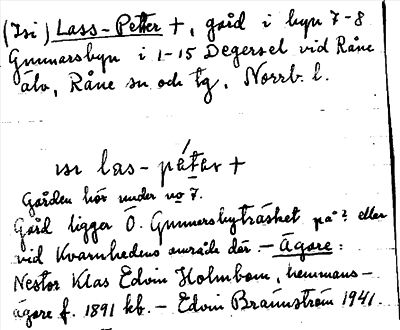 (Isi) Lass-Petter +, gård i byn 7-8
Gunnarsbyn i 1-15 Degersel vid Råne
älv, Råne sn och tg, Norrb. l.
ısı las-pétər +
Gården hör under no 7.
Gård ligger Ö. Gunnersbyträsket på? eller
vid Kvarnhedens område där. — Ägare:
Nestor Klas Edvin Holmbom, hemmans-
ägare f. 1891 kb. — Edvin Brännström 1941.